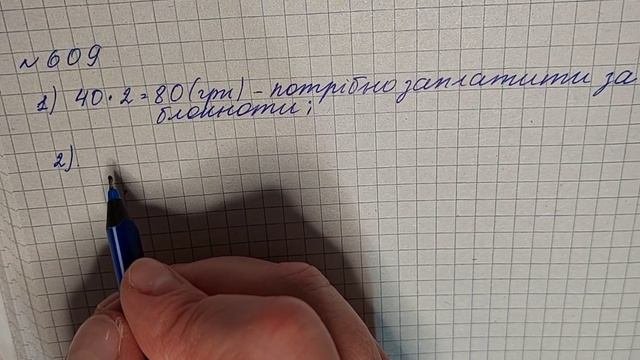 № 609
1) 40 · 2 = 80 (грн) – потрібно заплатити за
блокноти;
2)